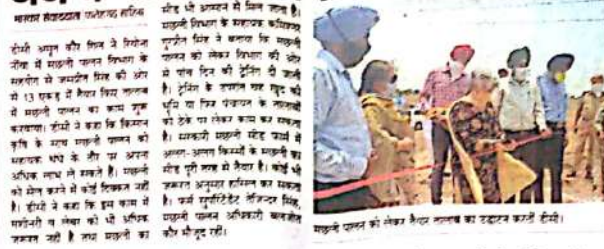 भास्कर संवाददाता फतेहगढ़ साहिब
डीसी अमृत कौर गिल ने रियोना
नीवां में मछली पालन विभाग के
सहयोग से जसप्रीत सिंह की ओर
से 13 एकड़ में तैयार किए तालाब
में मछली पालन का काम शुरू
करवाया। डीसी ने कहा कि किसान
कृषि के साथ मछली पालन को
सहायक धंधे के तौर पर अपना
अधिक लाभ ले सकते हैं। मछली
को सेल करने में कोई दिक्कत नहीं
है। डीसी ने कहा कि इस काम में
मशीनरी व लेबर की भी अधिक
जरूरत नहीं है तथा मछली का
सीड भी आसान से मिल जाता है।
मछली विभाग के सहायक कमिश्नर
गुरप्रीत सिंह ने बताया कि मछली
पालन को लेकर विभाग की ओर
से पांच दिन की ट्रेनिंग दी जाती
है। ट्रेनिंग के उपरांत वह खुद की
भूमि या फिर पंचायत के तालाबों
को ठेके पर लेकर काम कर सकता
है। सरकारी मछली सीड फार्म में
अलग-अलग किस्मों के मछली का
सीड पूरी तरह से तैयार है। कोई भी
जरूरत अनुसार हासिल कर सकता
है। फार्म सुपरिंटेंडेंट तेजिन्दर सिंह,
मछली पालन अधिकारी बलजोत
कौर मौजूद रहीं।
मछली पालन को लेकर तैयार तालाब का उद्घाटन करतीं डीसी।